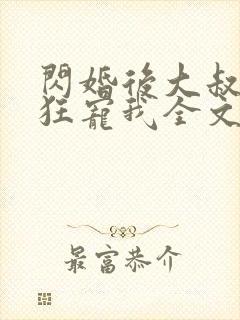 閃婚後大叔
狂寵我全文
最富恭介